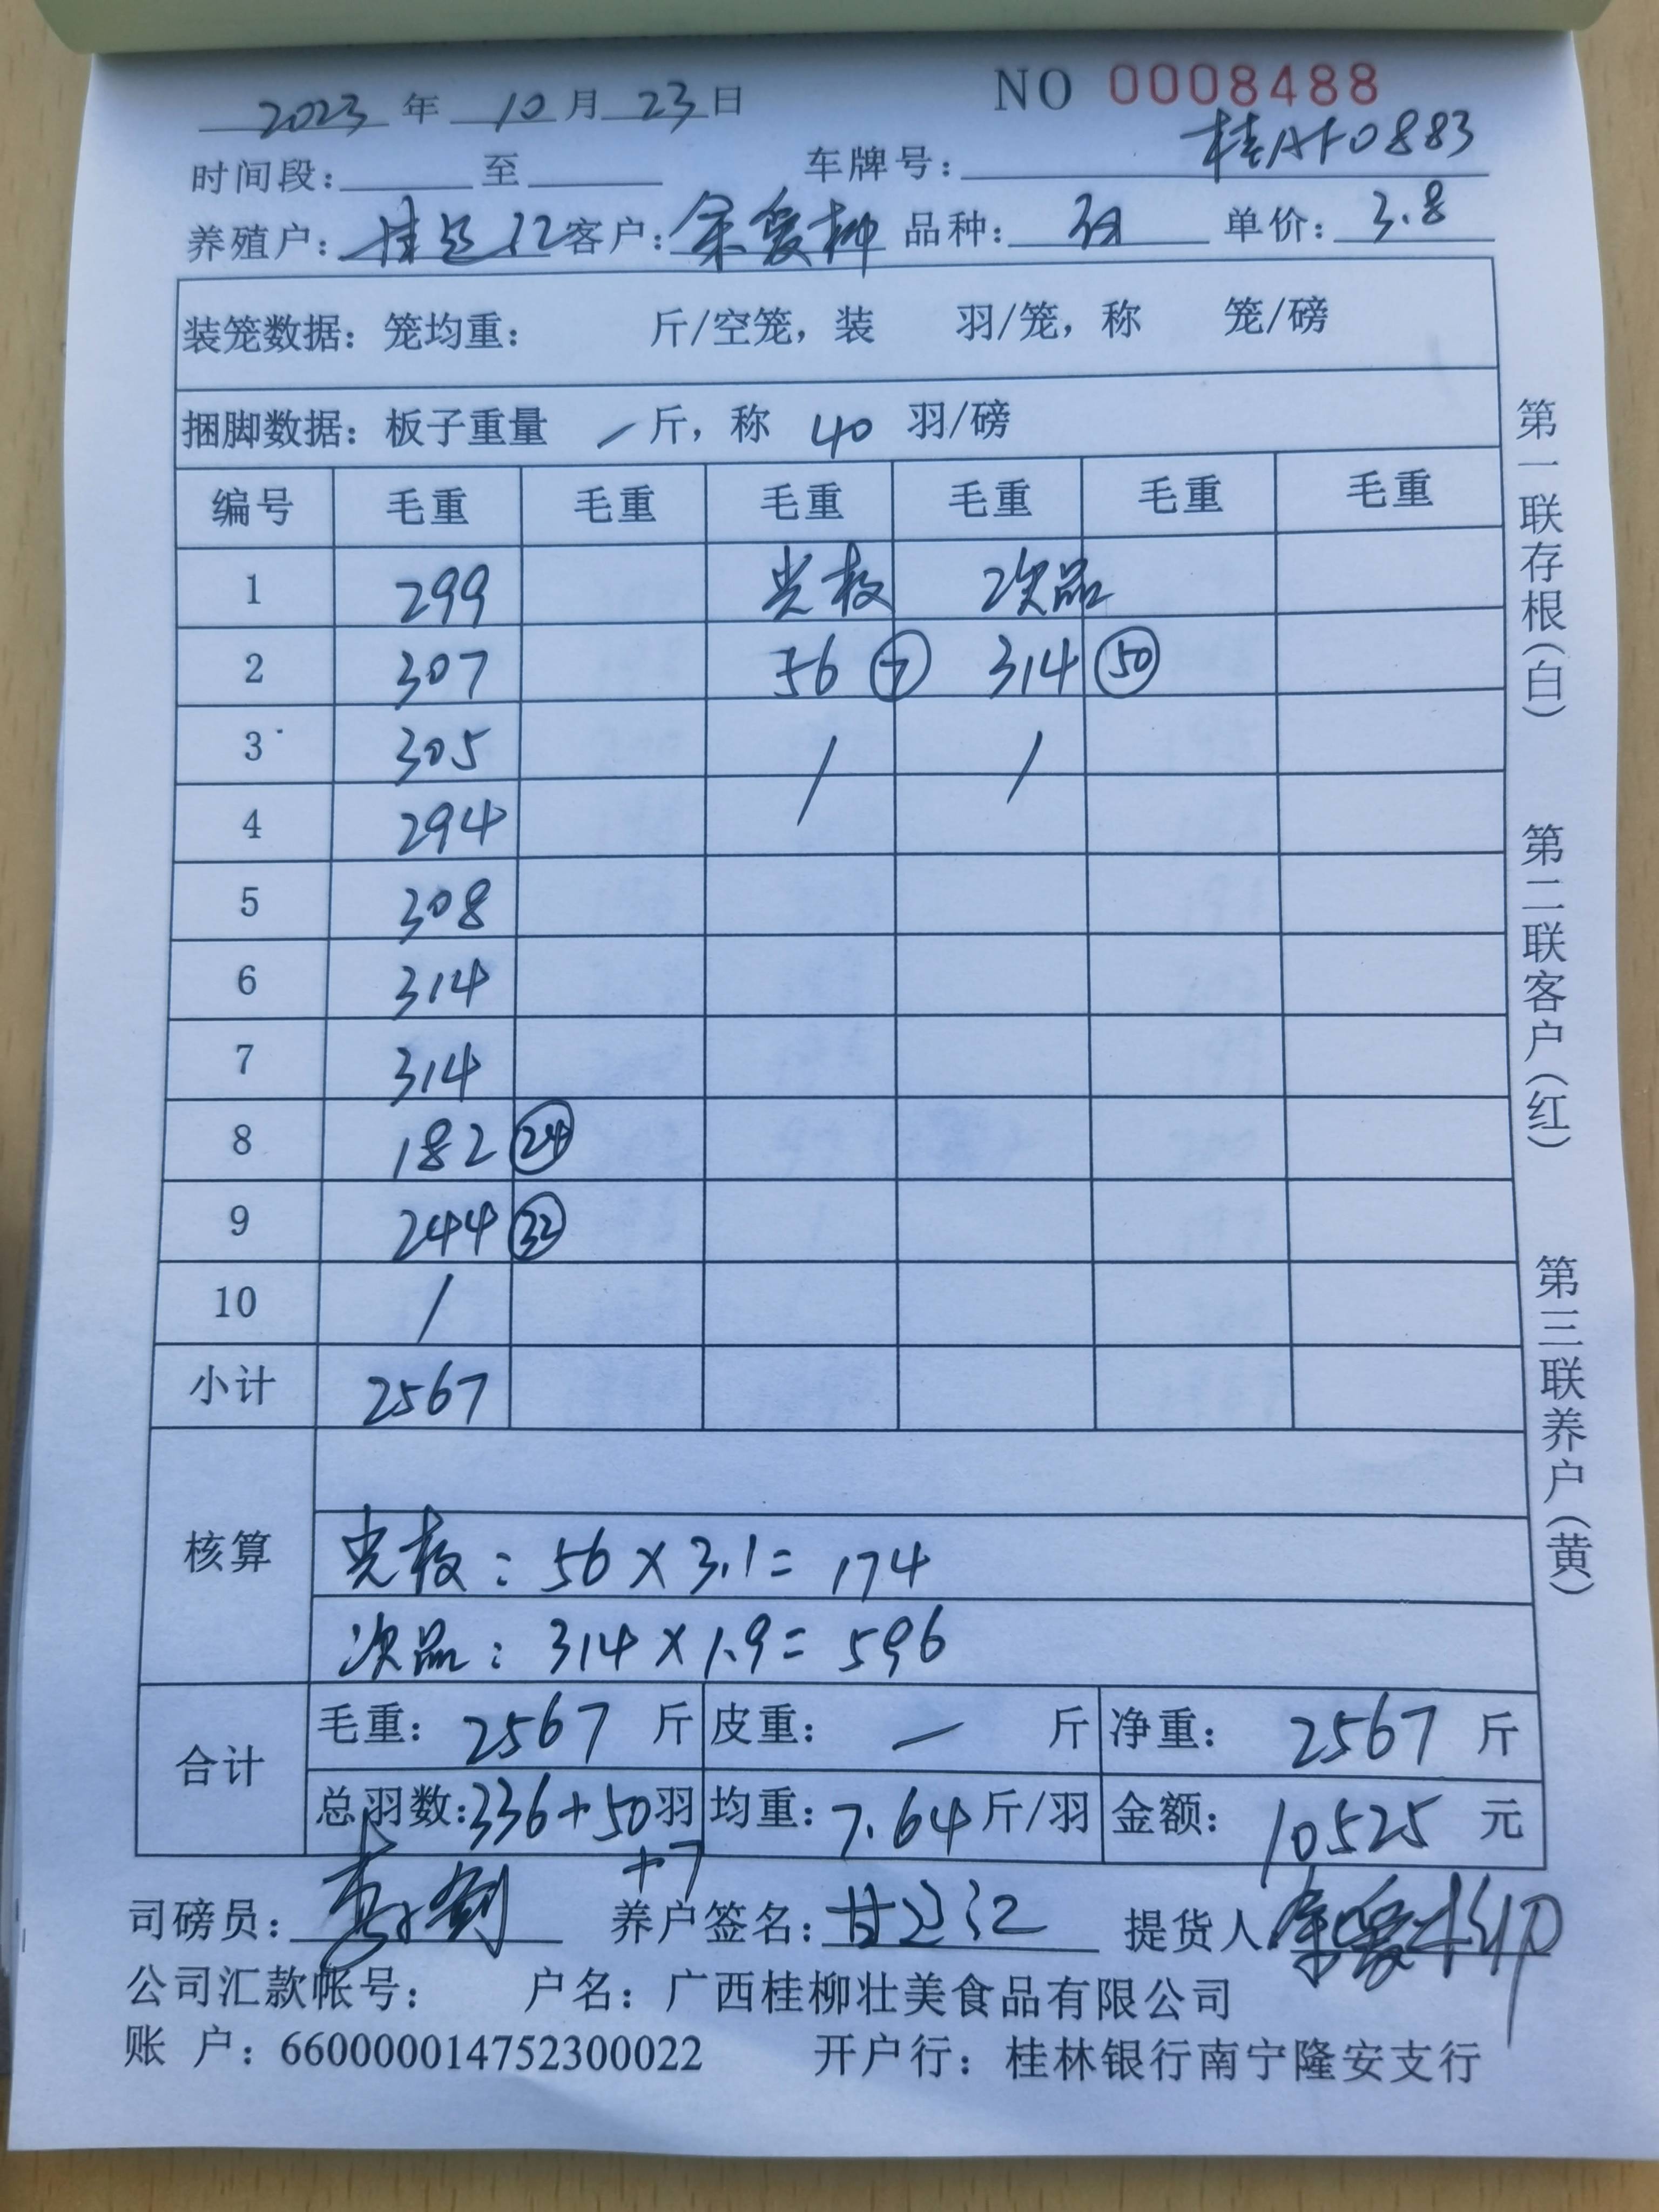 2023 年 10 月 23 日 NO 0008488
时间段: 至 车牌号: 桂AF0883
养殖户: 客户: 余爱柳 品种: 单价: 3.8
装笼数据: 笼均重: 斤/空笼, 装 羽/笼, 称 笼/磅
捆脚数据: 板子重量 / 斤, 称 40 羽/磅
编号 毛重 毛重 毛重 毛重 毛重 毛重
1 299 光板 次品
2 307 56 ⑦ 314 ㊿
3 305 / /
4 294
5 308
6 314
7 314
8 182 ㉔
9 244 ㉜
10 /
小计 2567
核算
光板: 56×3.1= 174
次品: 314×1.9= 596
合计
毛重: 2567 斤 皮重: — 斤 净重: 2567 斤
总羽数: 336+50 羽 均重: 7.64 斤/羽 金额: 10525 元
+7
司磅员: 养户签名: 提货人: 余爱柳
公司汇款帐号: 户名: 广西桂柳壮美食品有限公司
账 户: 660000014752300022 开户行: 桂林银行南宁隆安支行
第一联存根(白) 第二联客户(红) 第三联养户(黄)